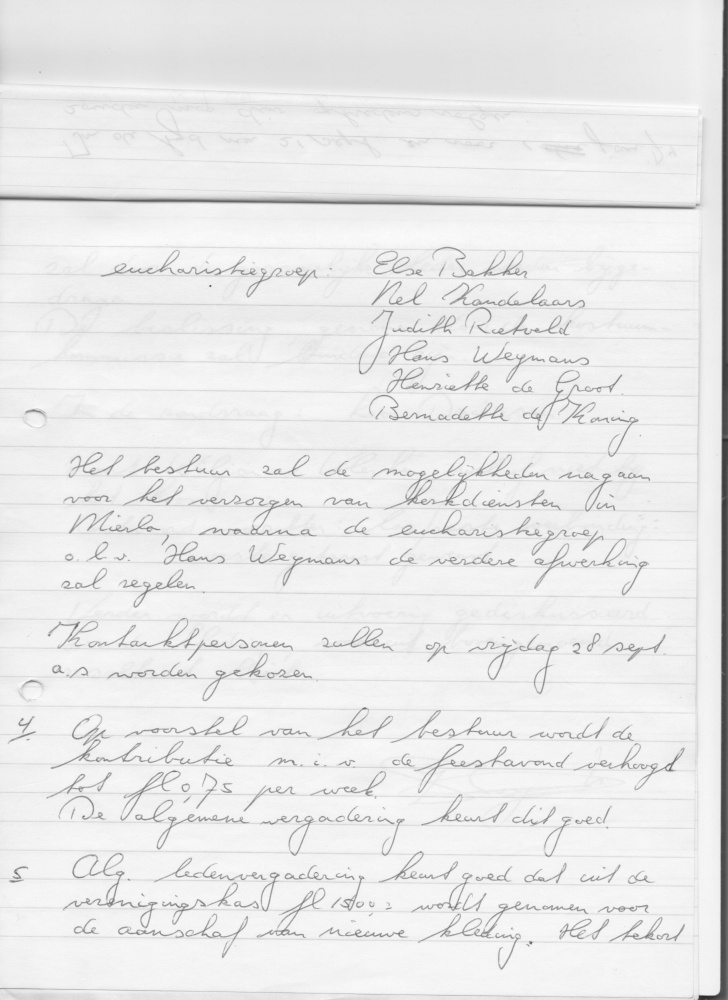 eucharistiegroep: Else Bakker
Nel Kandelaars
Judith Rietveld
Hans Wegmans
Henriette de Groot.
Bernadette de Koning.
Het bestuur zal de mogelijkheden nagaan
voor het verzorgen van kerkdiensten in
Mierlo, waarna de eucharistiegroep
o.l.v. Hans Wegmans de verdere afwerking
zal regelen.
Kontaktpersonen zullen op vrijdag 28 sept.
a.s. worden gekozen.
4. Op voorstel van het bestuur wordt de
kontributie m.i.v. de feestavond verhoogd
tot fl 0,75 per week.
De algemene vergadering keurt dit goed.
5 Alg. ledenvergadering keurt goed dat uit de
verenigingskas fl 1500,= wordt genomen voor
de aanschaf van nieuwe kleding. Het tekort